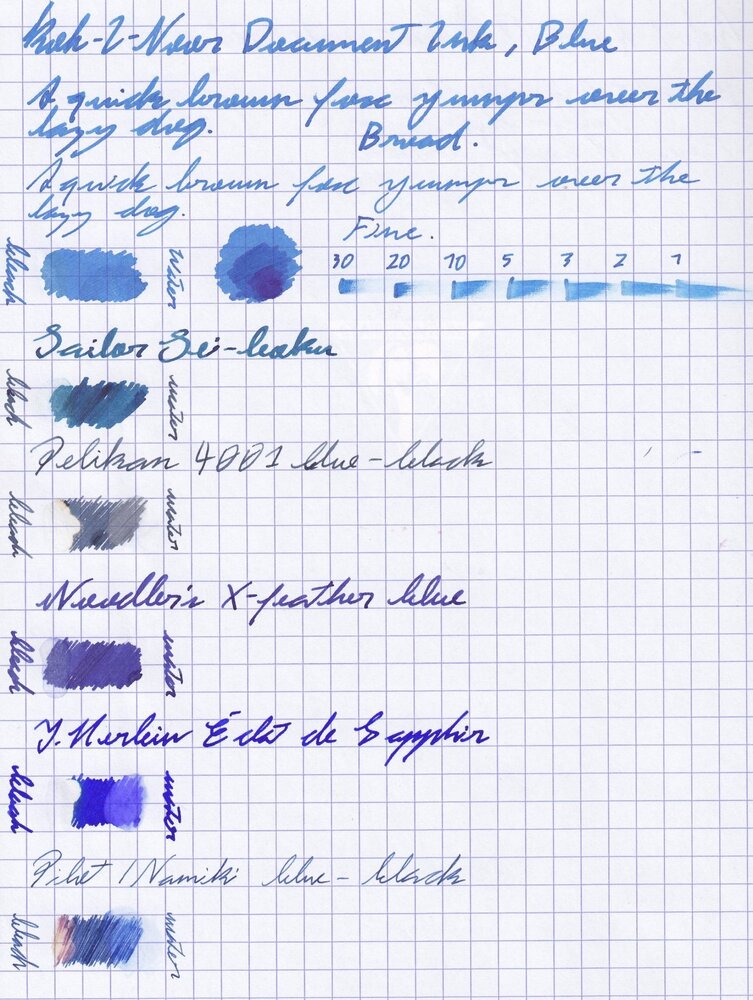 Koh-I-Noor Document Ink, Blue
A quick brown fox yumps over the
lazy dog.
Broad.
A quick brown fox yumps over the
lazy dog.
Fine.
bleach
water
30 20 10 5 3 2 1
Sailor Sei-boku
bleach
water
Pelikan 4001 blue-black
bleach
water
Noodler's X-feather blue
bleach
water
J. Herbin Éclat de Sapphir
bleach
water
Pilot / Namiki blue-black
bleach
water